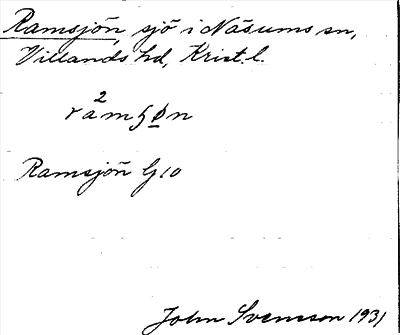 Ramsjön, sjö i Näsums sn,
Villands hd, Krist. l.
2
ramʃøn
Ramsjön G10
John Svensson 1931